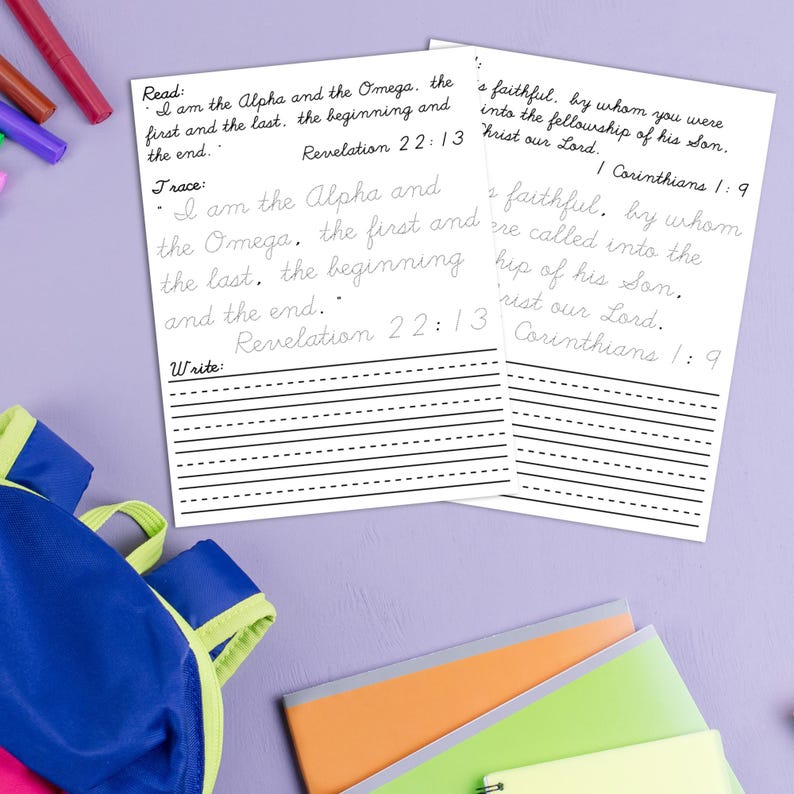 Read:
" I am the Alpha and the Omega, the
first and the last, the beginning and
the end. "
Revelation 22:13
Trace:
" I am the Alpha and
the Omega, the first and
the last, the beginning
and the end. "
Revelation 22:13
Write:
faithful, by whom you were
into the fellowship of his Son,
Christ our Lord.
1 Corinthians 1:9
faithful, by whom
called into the
of his Son,
our Lord.
Corinthians 1:9